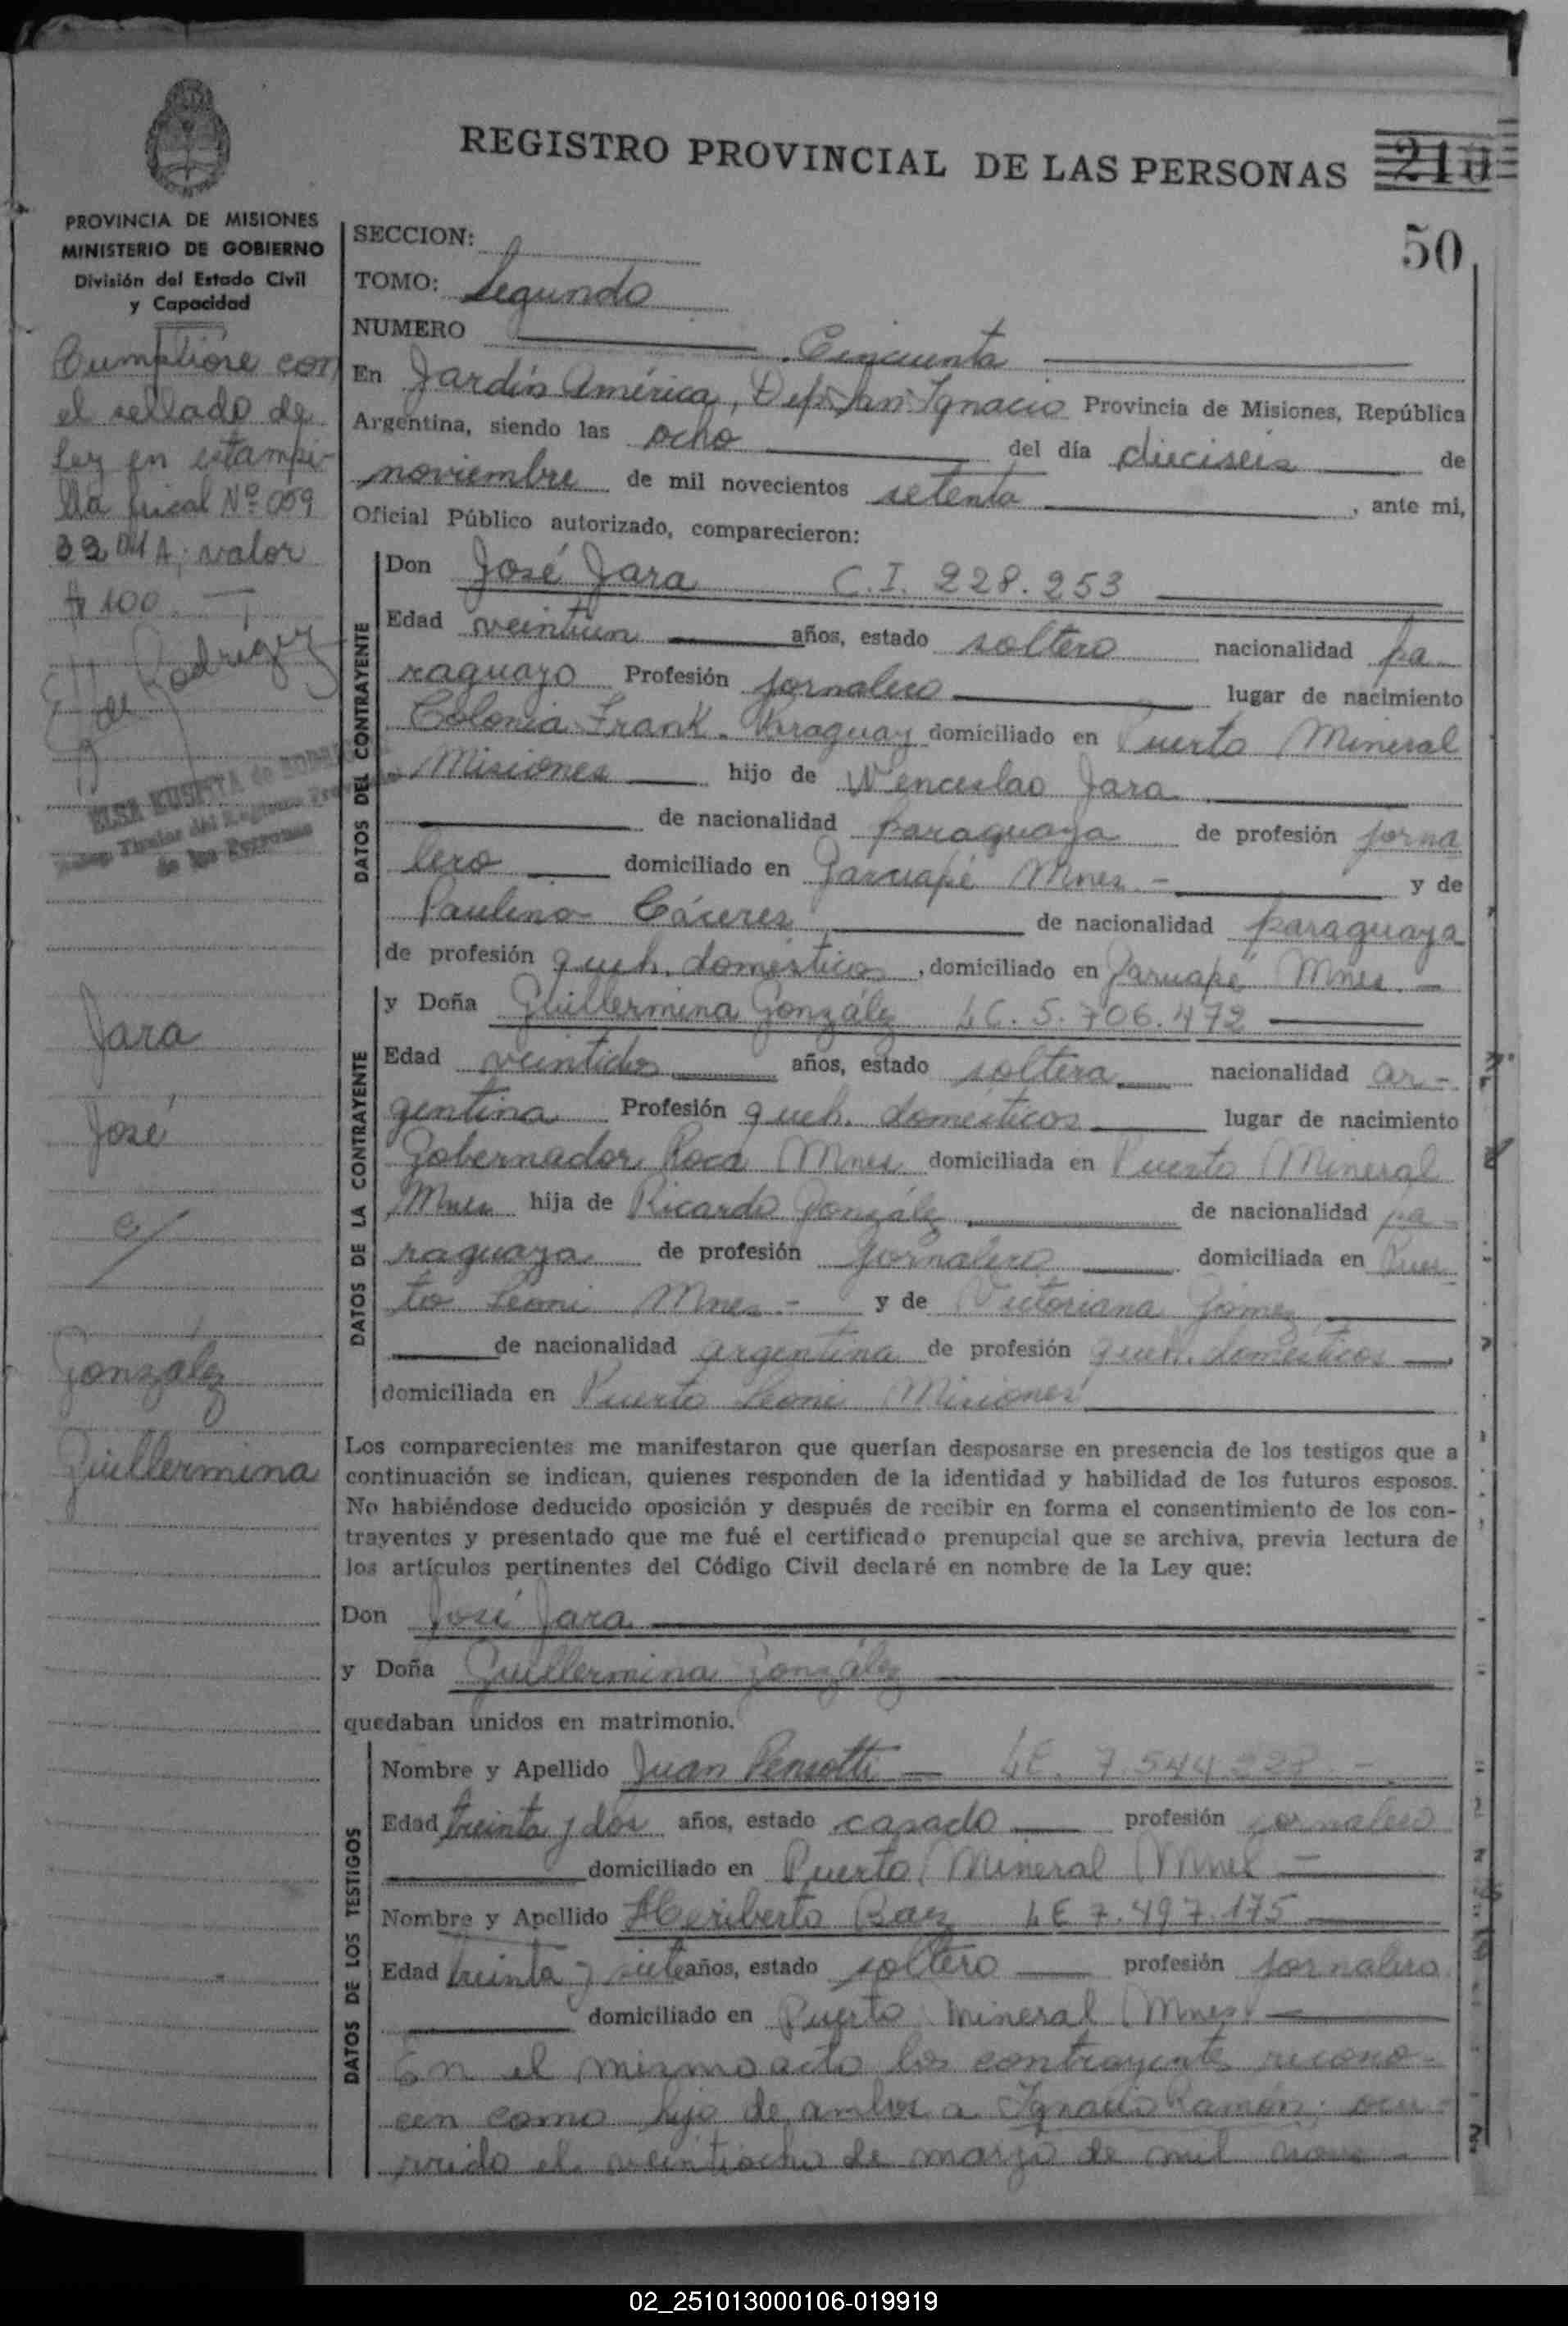 REGISTRO PROVINCIAL DE LAS PERSONAS 210
50
PROVINCIA DE MISIONES
MINISTERIO DE GOBIERNO
División del Estado Civil
y Capacidad
Cumplióse con
el sellado de
Ley en estampi-
lla fiscal Nº 009
A. valor
$ 100.—
E. H. de Rodriguez
ELSA
Titular del Registro Provincial
de las Personas
Jara
José
c/
González
Guillermina
SECCION:
TOMO: Segundo
NUMERO Cincuenta
En Jardín América, Dep. San Ignacio Provincia de Misiones, República
Argentina, siendo las ocho del día dieciseis de
noviembre de mil novecientos setenta, ante mi,
Oficial Público autorizado, comparecieron:
DATOS DEL CONTRAYENTE
Don José Jara C.I. 228.253
Edad veintiun años, estado soltero nacionalidad pa
raguayo Profesión jornalero lugar de nacimiento
Colonia Frank. Paraguay domiciliado en Puerto Mineral
Misiones hijo de Wenceslao Jara
de nacionalidad paraguaya de profesión jorna
lero domiciliado en Garuapé Mnes.- y de
Paulina Cáceres de nacionalidad paraguaya
de profesión queh. domésticos, domiciliado en Garuapé Mnes.-
DATOS DE LA CONTRAYENTE
y Doña Guillermina González LC. 5.706.472
Edad veintidos años, estado soltera nacionalidad ar-
gentina Profesión queh. domésticos lugar de nacimiento
Gobernador Roca Mnes domiciliada en Puerto Mineral
Mnes hija de Ricardo González de nacionalidad pa-
raguaya de profesión jornalero domiciliada en Puer
to Leoni Mnes.- y de Victoriana Gómez
de nacionalidad argentina de profesión queh. domésticos
domiciliada en Puerto Leoni Misiones
Los comparecientes me manifestaron que querían desposarse en presencia de los testigos que a
continuación se indican, quienes responden de la identidad y habilidad de los futuros esposos.
No habiéndose deducido oposición y después de recibir en forma el consentimiento de los con-
trayentes y presentado que me fué el certificado prenupcial que se archiva, previa lectura de
los artículos pertinentes del Código Civil declaré en nombre de la Ley que:
Don José Jara
y Doña Guillermina González
quedaban unidos en matrimonio.
DATOS DE LOS TESTIGOS
Nombre y Apellido Juan Pensotti — LE. 7.544.228.-
Edad treinta y dos años, estado casado profesión jornalero
domiciliado en Puerto Mineral Mnes —
Nombre y Apellido Heriberto Baez LE 7.497.175
Edad treinta y siete años, estado soltero profesión jornalero
domiciliado en Puerto Mineral Mnes
En el mismo acto los contrayentes recono-
cen como hijo de ambos a Ignacio Ramón; ocu-
rrido el veintiocho de marzo de mil nove-
02_251013000106-019919